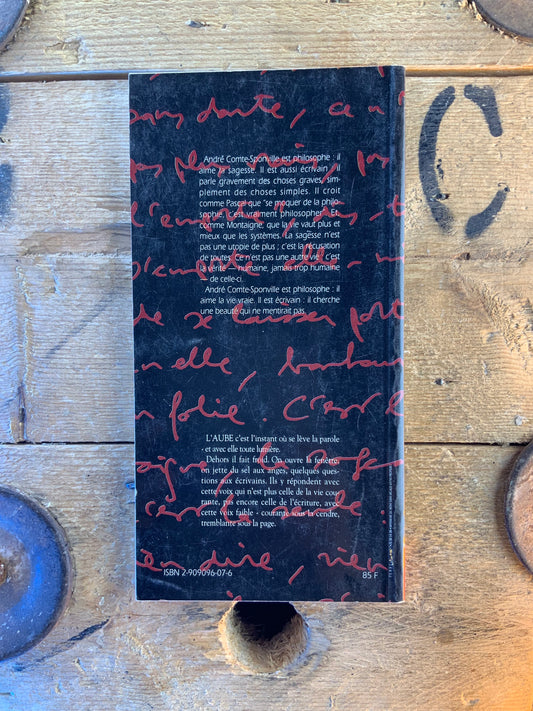 dante, ce n
plus
André Comte-Sponville est philosophe : il
aime la sagesse. Il est aussi écrivain : il
parle gravement des choses graves, sim-
plement des choses simples. Il croit
comme Pascal que "se moquer de la philo-
sophie, c'est vraiment philosopher". Et
comme Montaigne, que la vie vaut plus et
mieux que les systèmes. La sagesse n'est
pas une utopie de plus ; c'est la récusation
de toutes. Ce n'est pas une autre vie : c'est
la vérité — humaine, jamais trop humaine
— de celle-ci.
André Comte-Sponville est philosophe : il
aime la vie vraie. Il est écrivain : il cherche
une beauté qui ne mentirait pas.
se laisser
elle,
folie. C'est
L'AUBE c'est l'instant où se lève la parole
- et avec elle toute lumière.
Dehors il fait froid. On ouvre la fenêtre,
on jette du sel aux anges, quelques ques-
tions aux écrivains. Ils y répondent avec
cette voix qui n'est plus celle de la vie cou-
rante, pas encore celle de l'écriture, avec
cette voix faible - courante sous la cendre,
tremblante sous la page.
dire, rien
ISBN 2-909096-07-6
85 F
C